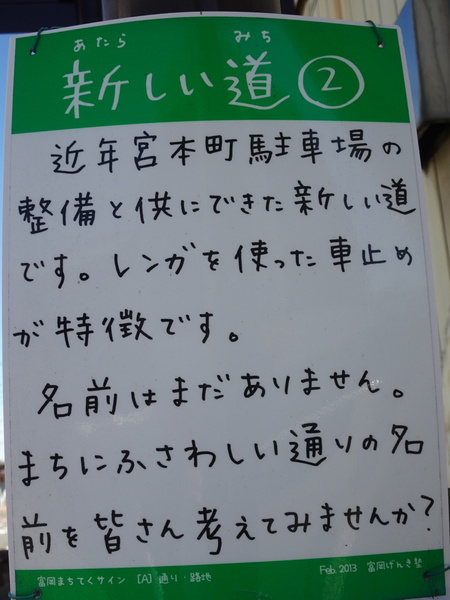 あたら みち
新しい道②
近年宮本町駐車場の
整備と供にできた新しい道
です。レンガを使った車止め
が特徴です。
名前はまだありません。
まちにふさわしい通りの名
前を皆さん考えてみませんか?
富岡まちてくサイン [A]通り・路地 Feb. 2013 富岡げんき塾